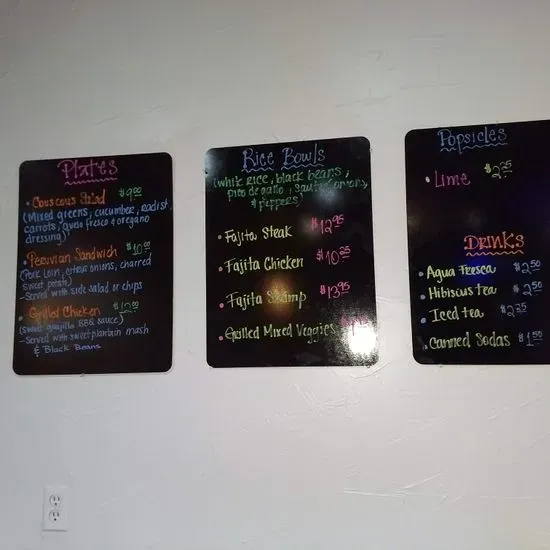 Plates
• Couscous Salad $9.00
(Mixed greens, cucumber, radish,
carrots, queso fresco & oregano
dressing)
• Peruvian Sandwich $10.00
(Pork Loin, citrus onions, charred
sweet potato)
- Served with side salad or chips
• Grilled Chicken $12.00
(Sweet guajillo BBQ sauce)
- Served with sweet plantain mash
& Black Beans
Rice Bowls
(white rice, black beans,
pico de gallo, sauteé onions
& peppers)
• Fajita Steak $12.95
• Fajita Chicken $10.25
• Fajita Shrimp $13.95
• Grilled Mixed Veggies
Popsicles
• Lime $2.25
Drinks
• Agua Fresca $2.50
• Hibiscus tea $2.50
• Iced tea $2.25
• Canned Sodas $1.50